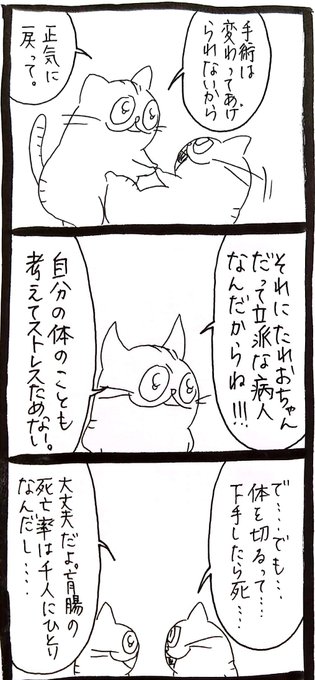 手術は
変わってあげ
られないから
正気に
戻って。
それにたれおちゃん
だって立派な病人
なんだからね!!!
自分の体のことも
考えてストレスためない。
で……でも…
体を切るって…
下手したら死…
大丈夫だよ。盲腸の
死亡率は千人にひとり
なんだし……